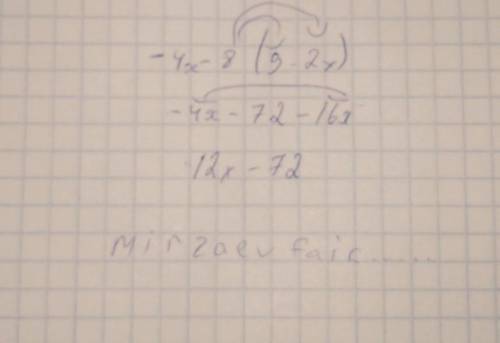 -4x-8(9-2x)
-4x-72-16x
12x-72
mirzaev faic.....